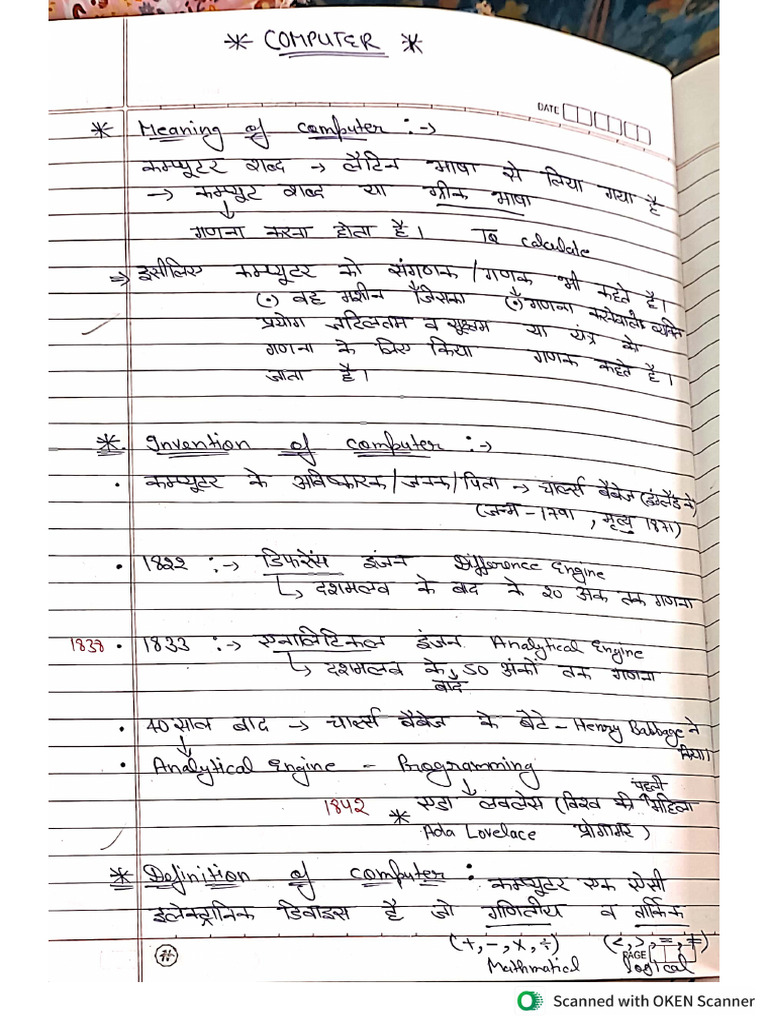 * COMPUTER *
DATE
* Meaning of computer :->
कम्प्यूटर शब्द -> लैटिन भाषा से लिया गया है
-> कम्प्यूट शब्द या ग्रीक भाषा
↓
गणना करना होता है। To calculate
=> इसीलिए कम्प्यूटर को संगणक / गणक भी कहते है।
(•) वह मशीन जिसका (•) गणना करनेवाले व्यक्ति
प्रयोग जटिलतम व सूक्ष्म या यंत्र को
गणना के लिए किया गणक कहते है।
जाता है।
* Invention of computer :->
• कम्प्यूटर के आविष्कारक/जनक/पिता -> चार्ल्स बैबेज (इंग्लैंड ने)
(जन्म - 1791 , मृत्यु 1871)
• 1822 :-> डिफरेंस इंजन Difference Engine
↳ दशमलव के बाद के 20 अंक तक गणना
1838 • 1833 :-> एनालिटिकल इंजन Analytical Engine
↳ दशमलव के बाद 50 अंको तक गणना
• 40 साल बाद -> चार्ल्स बैबेज के बेटे - Henry Babbage ने किया।
↓
• Analytical Engine - Programming
↓
1842 * एडा लवलेस (विश्व की पहली महिला
Ada Lovelace प्रोगामर)
* Definition of computer : कम्प्यूटर एक ऐसी
इलेक्ट्रानिक डिवाइस है जो गणितीय व तार्किक
(+, -, ×, ÷) (<, >, =, ≠)
Mathmaticl logical
PAGE
Scanned with OKEN Scanner